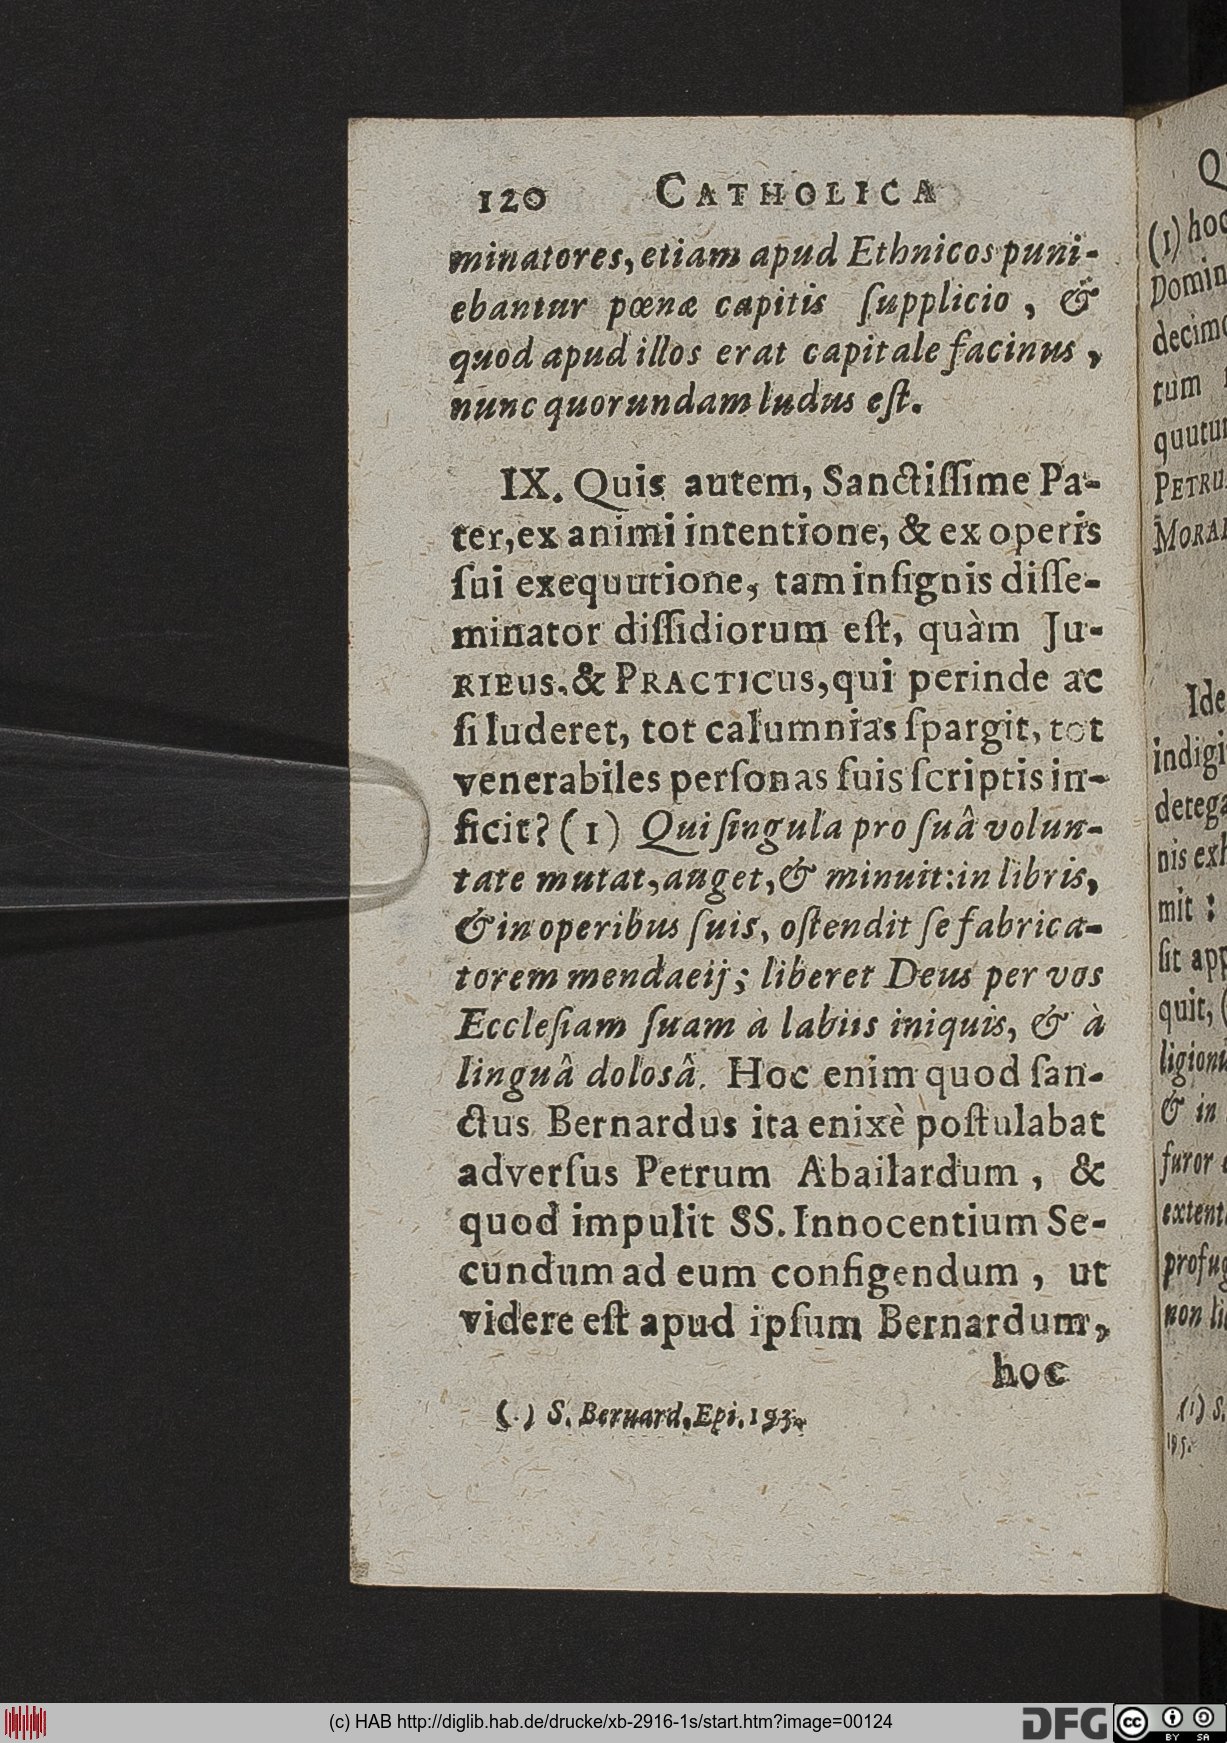 120 CATHOLICA
minatores, etiam apud Ethnicos puni-
ebantur pœnæ capitis ſupplicio, &
quod apud illos erat capitale facinus,
nunc quorundam ludus eſt.
IX. Quis autem, Sanctiſſime Pa-
ter, ex animi intentione, & ex operis
ſui exequutione, tam inſignis diſſe-
minator diſſidiorum eſt, quàm Ju-
RIEUS, & PRACTICUS, qui perinde ac
ſi luderet, tot calumnias ſpargit, tot
venerabiles perſonas ſuis ſcriptis in-
ficit? (1) Qui ſingula pro ſuâ volun-
tate mutat, auget, & minuit: in libris,
& in operibus ſuis, oſtendit ſe fabrica-
torem mendaeij; liberet Deus per vos
Eccleſiam ſuam à labiis iniquis, & à
linguâ dolosâ. Hoc enim quod ſan-
ctus Bernardus ita enixè poſtulabat
adverſus Petrum Abailardum, &
quod impulit SS. Innocentium Se-
cundum ad eum configendum, ut
videre eſt apud ipſum Bernardum,
hoc
( ) S. Beruard. Epi. 193.
(1) hoc
Domin
decimo
tum
quutu
PETRU
MORA
Ide
indigi
detega
nis exh
mit:
ſit app
quit,
ligioni
& in
furor
extent
profug
non li
(1) S.
195.
(c) HAB http://diglib.hab.de/drucke/xb-2916-1s/start.htm?image=00124
DFG
cc
BY SA